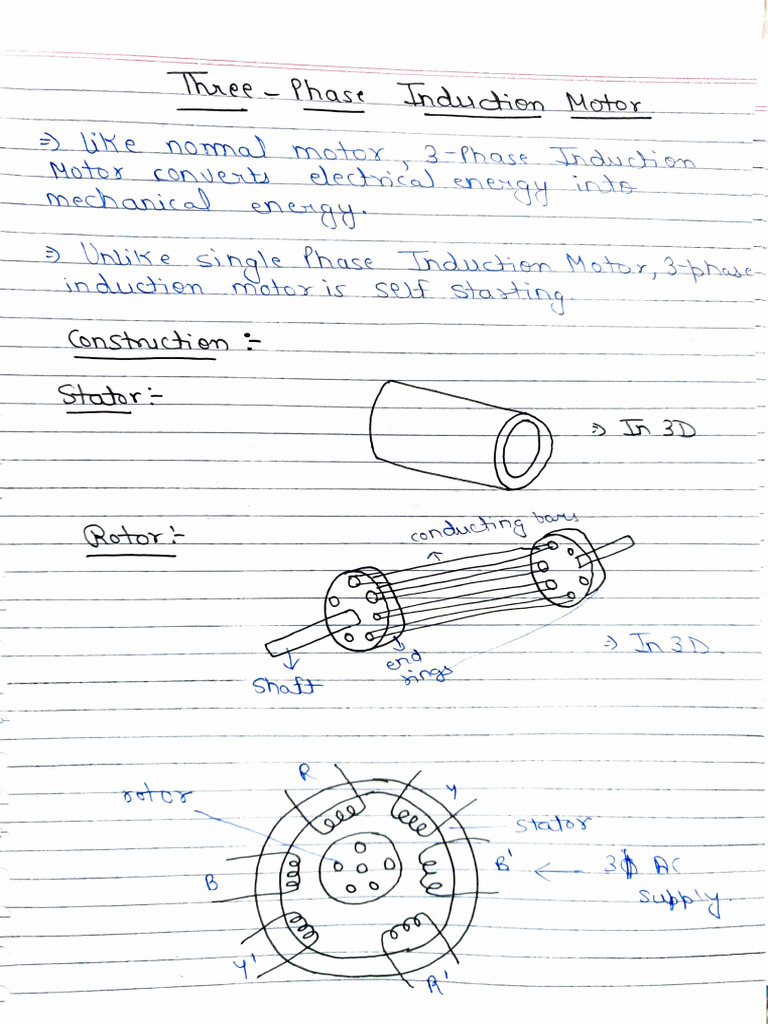 Three-Phase Induction Motor
⇒ Like normal motor, 3-Phase Induction
Motor converts electrical energy into
mechanical energy.
⇒ Unlike single Phase Induction Motor, 3-phase
induction motor is self starting
Construction :-
Stator :-
⇒ In 3D
conducting bars
Rotor :-
⇒ In 3D.
end
rings
Shaft
R
rotor
Y
stator
B' ← 3ϕ AC
supply.
B
Y'
R'